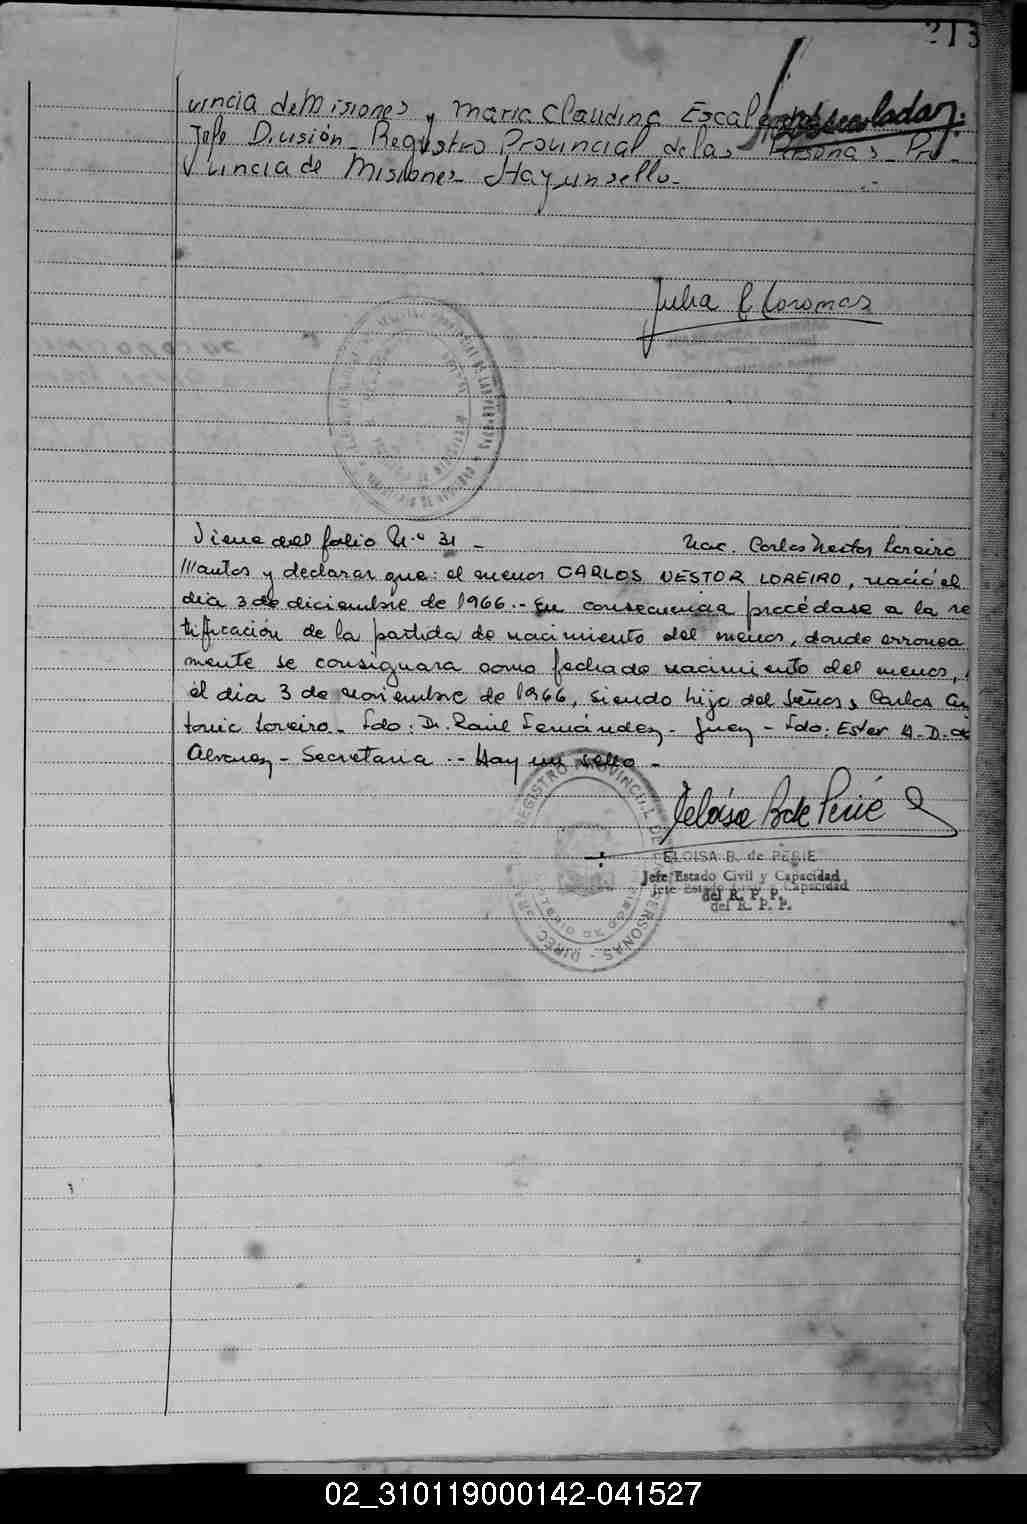 213
vincia de Misiones y Maria Claudina Escalada
Jefe División Registro Provincial de las Personas Pro-
vincia de Misiones Hay un sello-
Julia C Coromas
Viene del folio N.º 31 - Nac. Carlos Nestor Loreiro
///autos y declarar que: el menor CARLOS NESTOR LOREIRO, nació el
día 3 de diciembre de 1966.- En consecuencia procédase a la re
tificación de la partida de nacimiento del menor, donde erronea
mente se consignara como fecha de nacimiento del menor,
el día 3 de noviembre de 1966, siendo hijo del Señor, Carlos An
tonio Loreiro- Fdo: Dr. Raúl Fernández- Juez - Fdo: Ester A. D. de
Alvarez - Secretaria .- Hay un sello -
Eloisa B de Perié
REGISTRO PROVINCIAL DE LAS PERSONAS - DIREC
ELOISA B. de PERIE
Jefe Estado Civil y Capacidad
Jefe Estado Civil y Capacidad
del R. P. P.
del R. P. P.
02_310119000142-041527